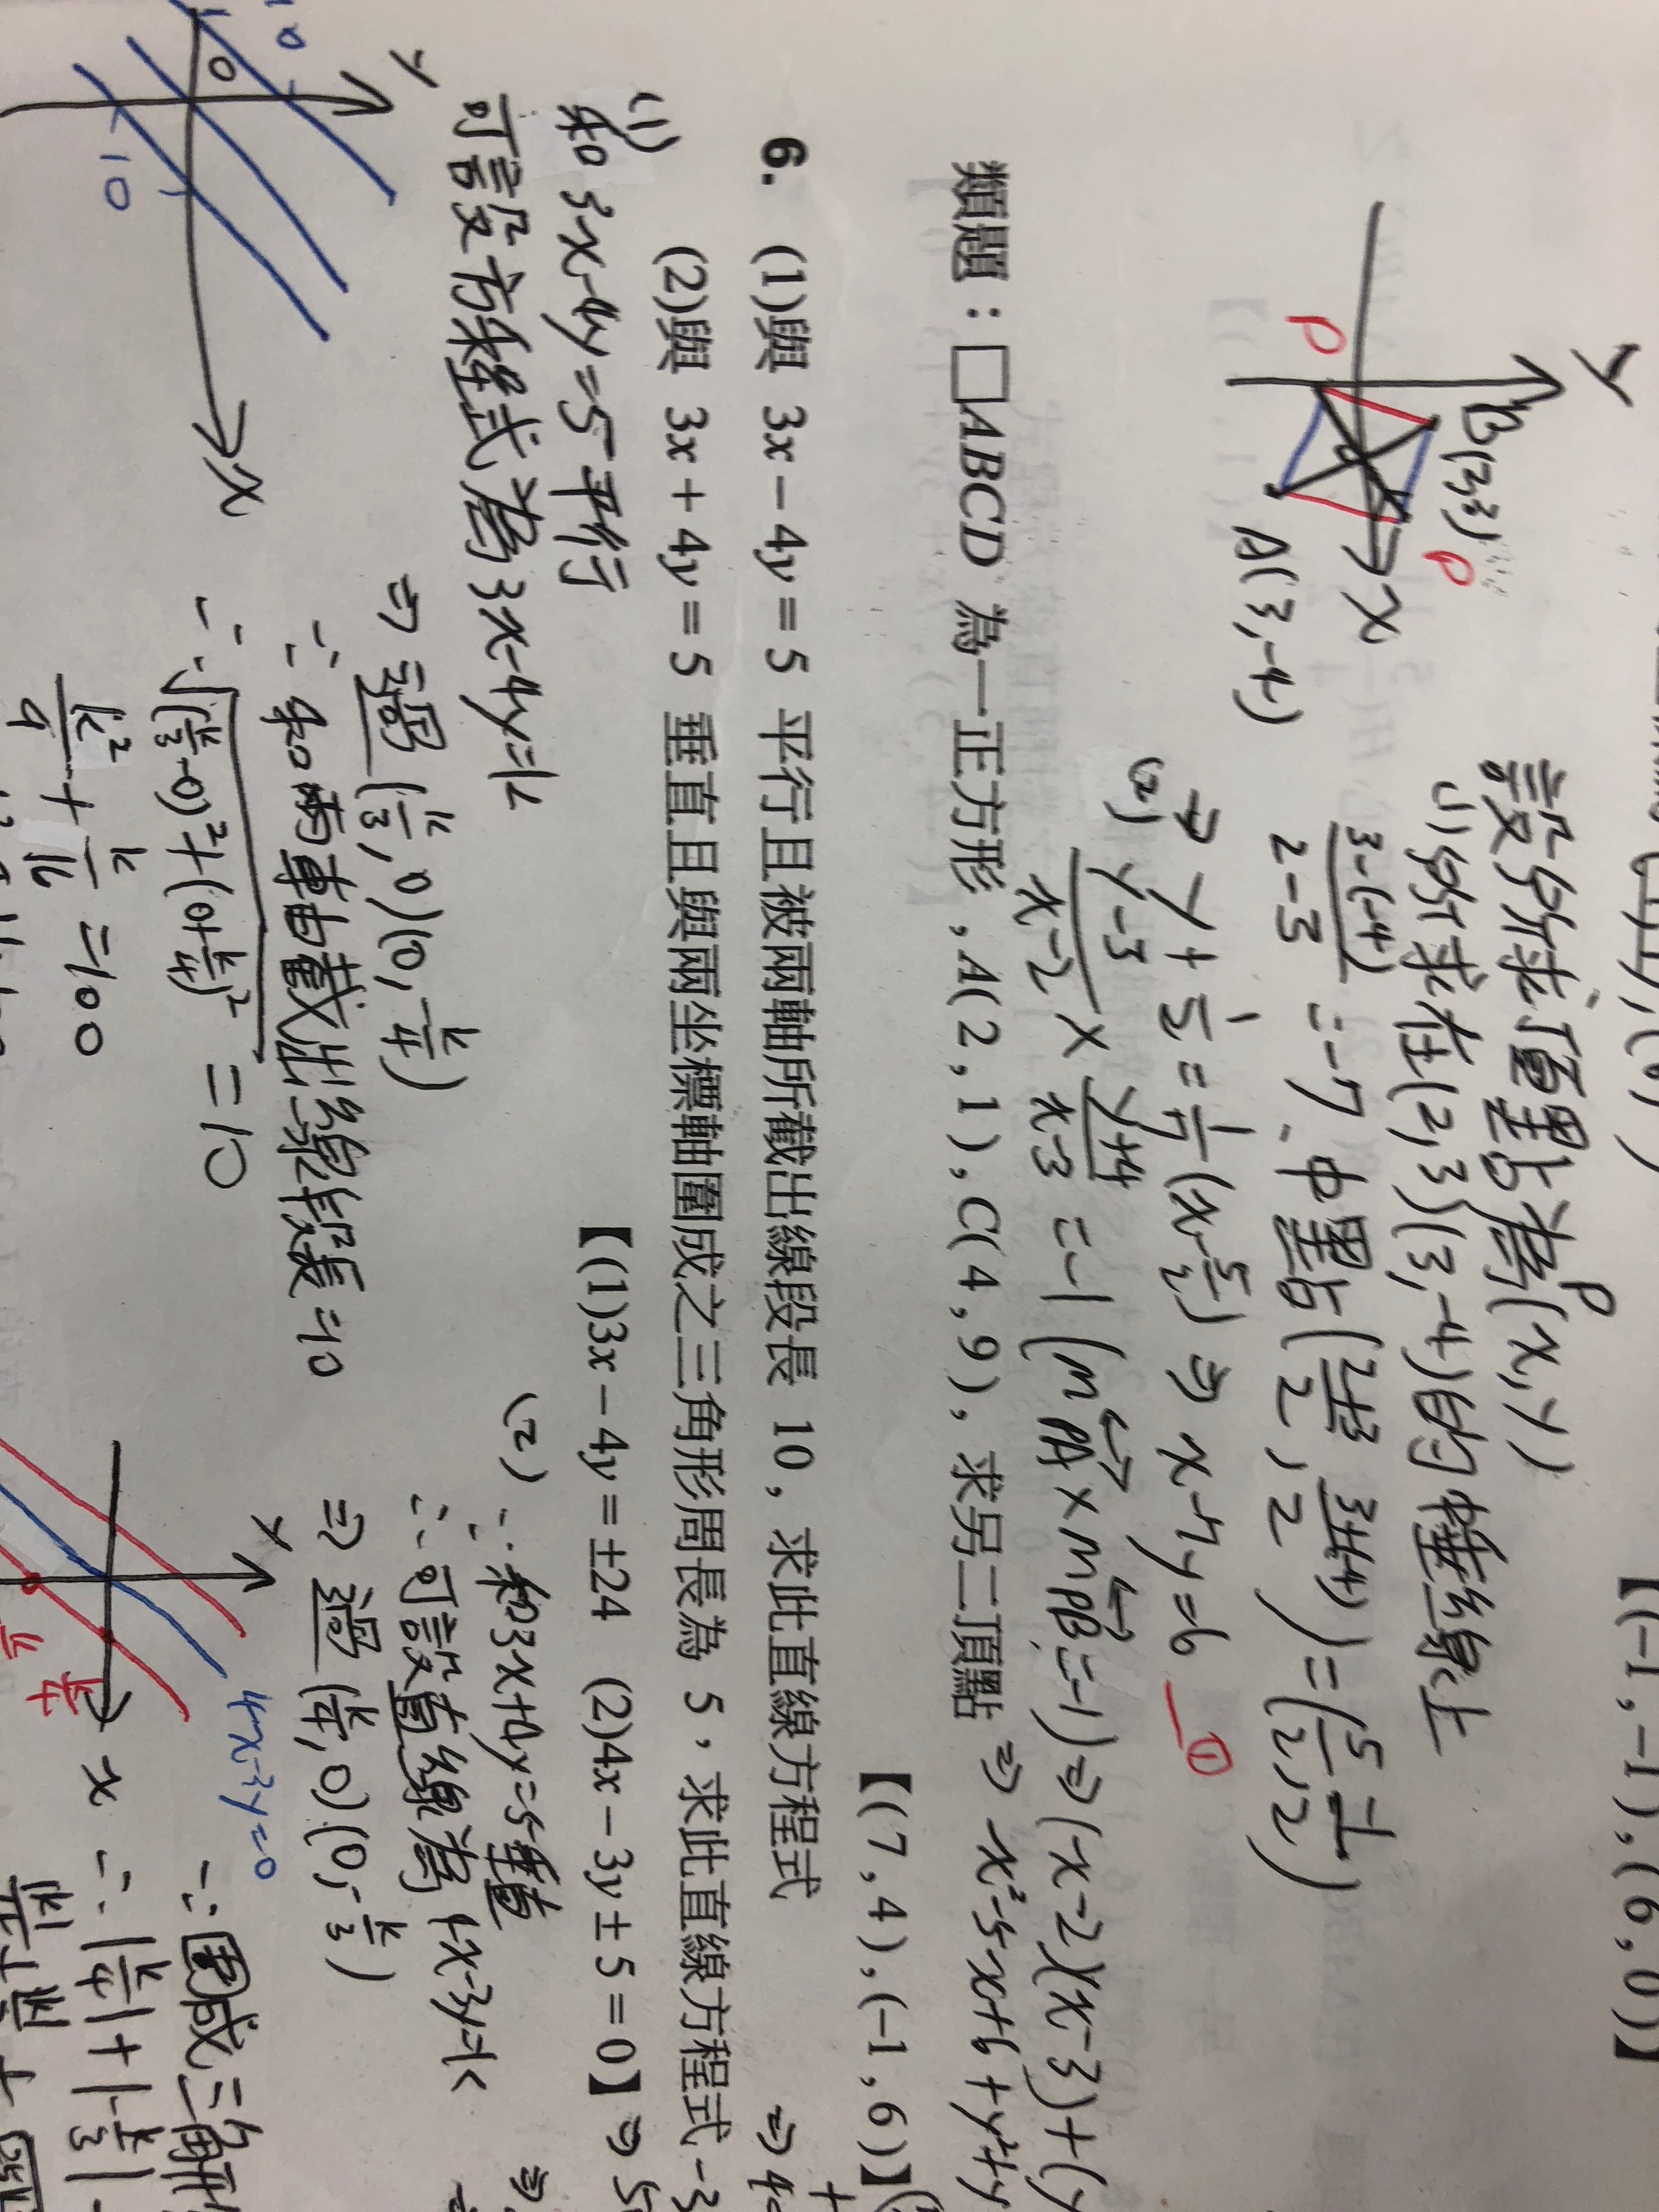 【(-1,-1),(6,0)】
設所求頂點為P(x,y)
(1)所求在(2,3)(3,-4)的中垂線上
y
B(2,3)
P
x
P
A(3,-4)
3-(-4)/2-3 = -7 中點(2+3/2, 3+(-4)/2) = (5/2, -1/2)
⇒ y+1/2=1/7(x-5/2) ⇒ x-7y=6 —①
(2) y-3/x-2 × y+4/x-3 = -1 (m PA × m PB = -1) ⇒ (x-2)(x-3)+(y
類題:□ABCD 為一正方形,A(2,1),C(4,9),求另二頂點 ⇒ x²-5x+6+y²+y
【(7,4),(-1,6)】
6. (1)與 3x-4y=5 平行且被兩軸所截出線段長 10,求此直線方程式
(2)與 3x+4y=5 垂直且與兩坐標軸圍成之三角形周長為 5,求此直線方程式
【(1)3x-4y=±24 (2)4x-3y±5=0】
(1)
和 3x-4y=5 平行
可設方程式為 3x-4y=k
⇒ 過(k/3,0)(0,-k/4)
∵ 和兩軸截出線段長=10
∴ √(k/3-0)²+(0+k/4)² = 10
k²/9 + k²/16 =100
y
0
x
10
(2)
∵ 和3x+4y=5垂直
∴ 可設直線為 4x-3y=k
⇒ 過(k/4,0)(0,-k/3)
y
4x-3y=0
x
k/4
∵ 圍成三角形
∴ |k/4|+|-k/3|